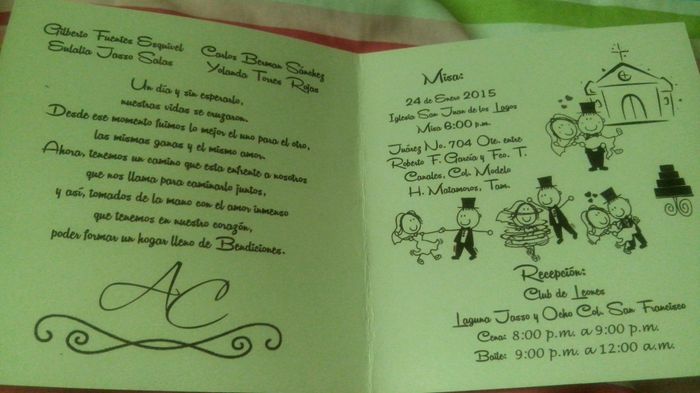 Gilberto Fuentes Esquivel
Eulalia Jasso Salas
Carlos Berman Sánchez
Yolanda Torres Rojas
Un día y sin esperarlo,
nuestras vidas se cruzaron.
Desde ese momento fuimos lo mejor el uno para el otro,
las mismas ganas y el mismo amor.
Ahora, tenemos un camino que esta enfrente a nosotros
que nos llama para caminarlo juntos,
y así, tomados de la mano con el amor inmenso
que tenemos en nuestro corazón,
poder formar un hogar lleno de Bendiciones.
AC
Misa:
24 de Enero 2015
Iglesia San Juan de los Lagos
Misa 6:00 p.m.
Juárez No. 704 Ote. entre
Roberto F. García y Fco. T.
Canales, Col. Modelo
H. Matamoros, Tam.
Recepción:
Club de Leones
Laguna Jasso y Ocho Col. San Francisco
Cena: 8:00 p.m. a 9:00 p.m.
Baile: 9:00 p.m. a 12:00 a.m.